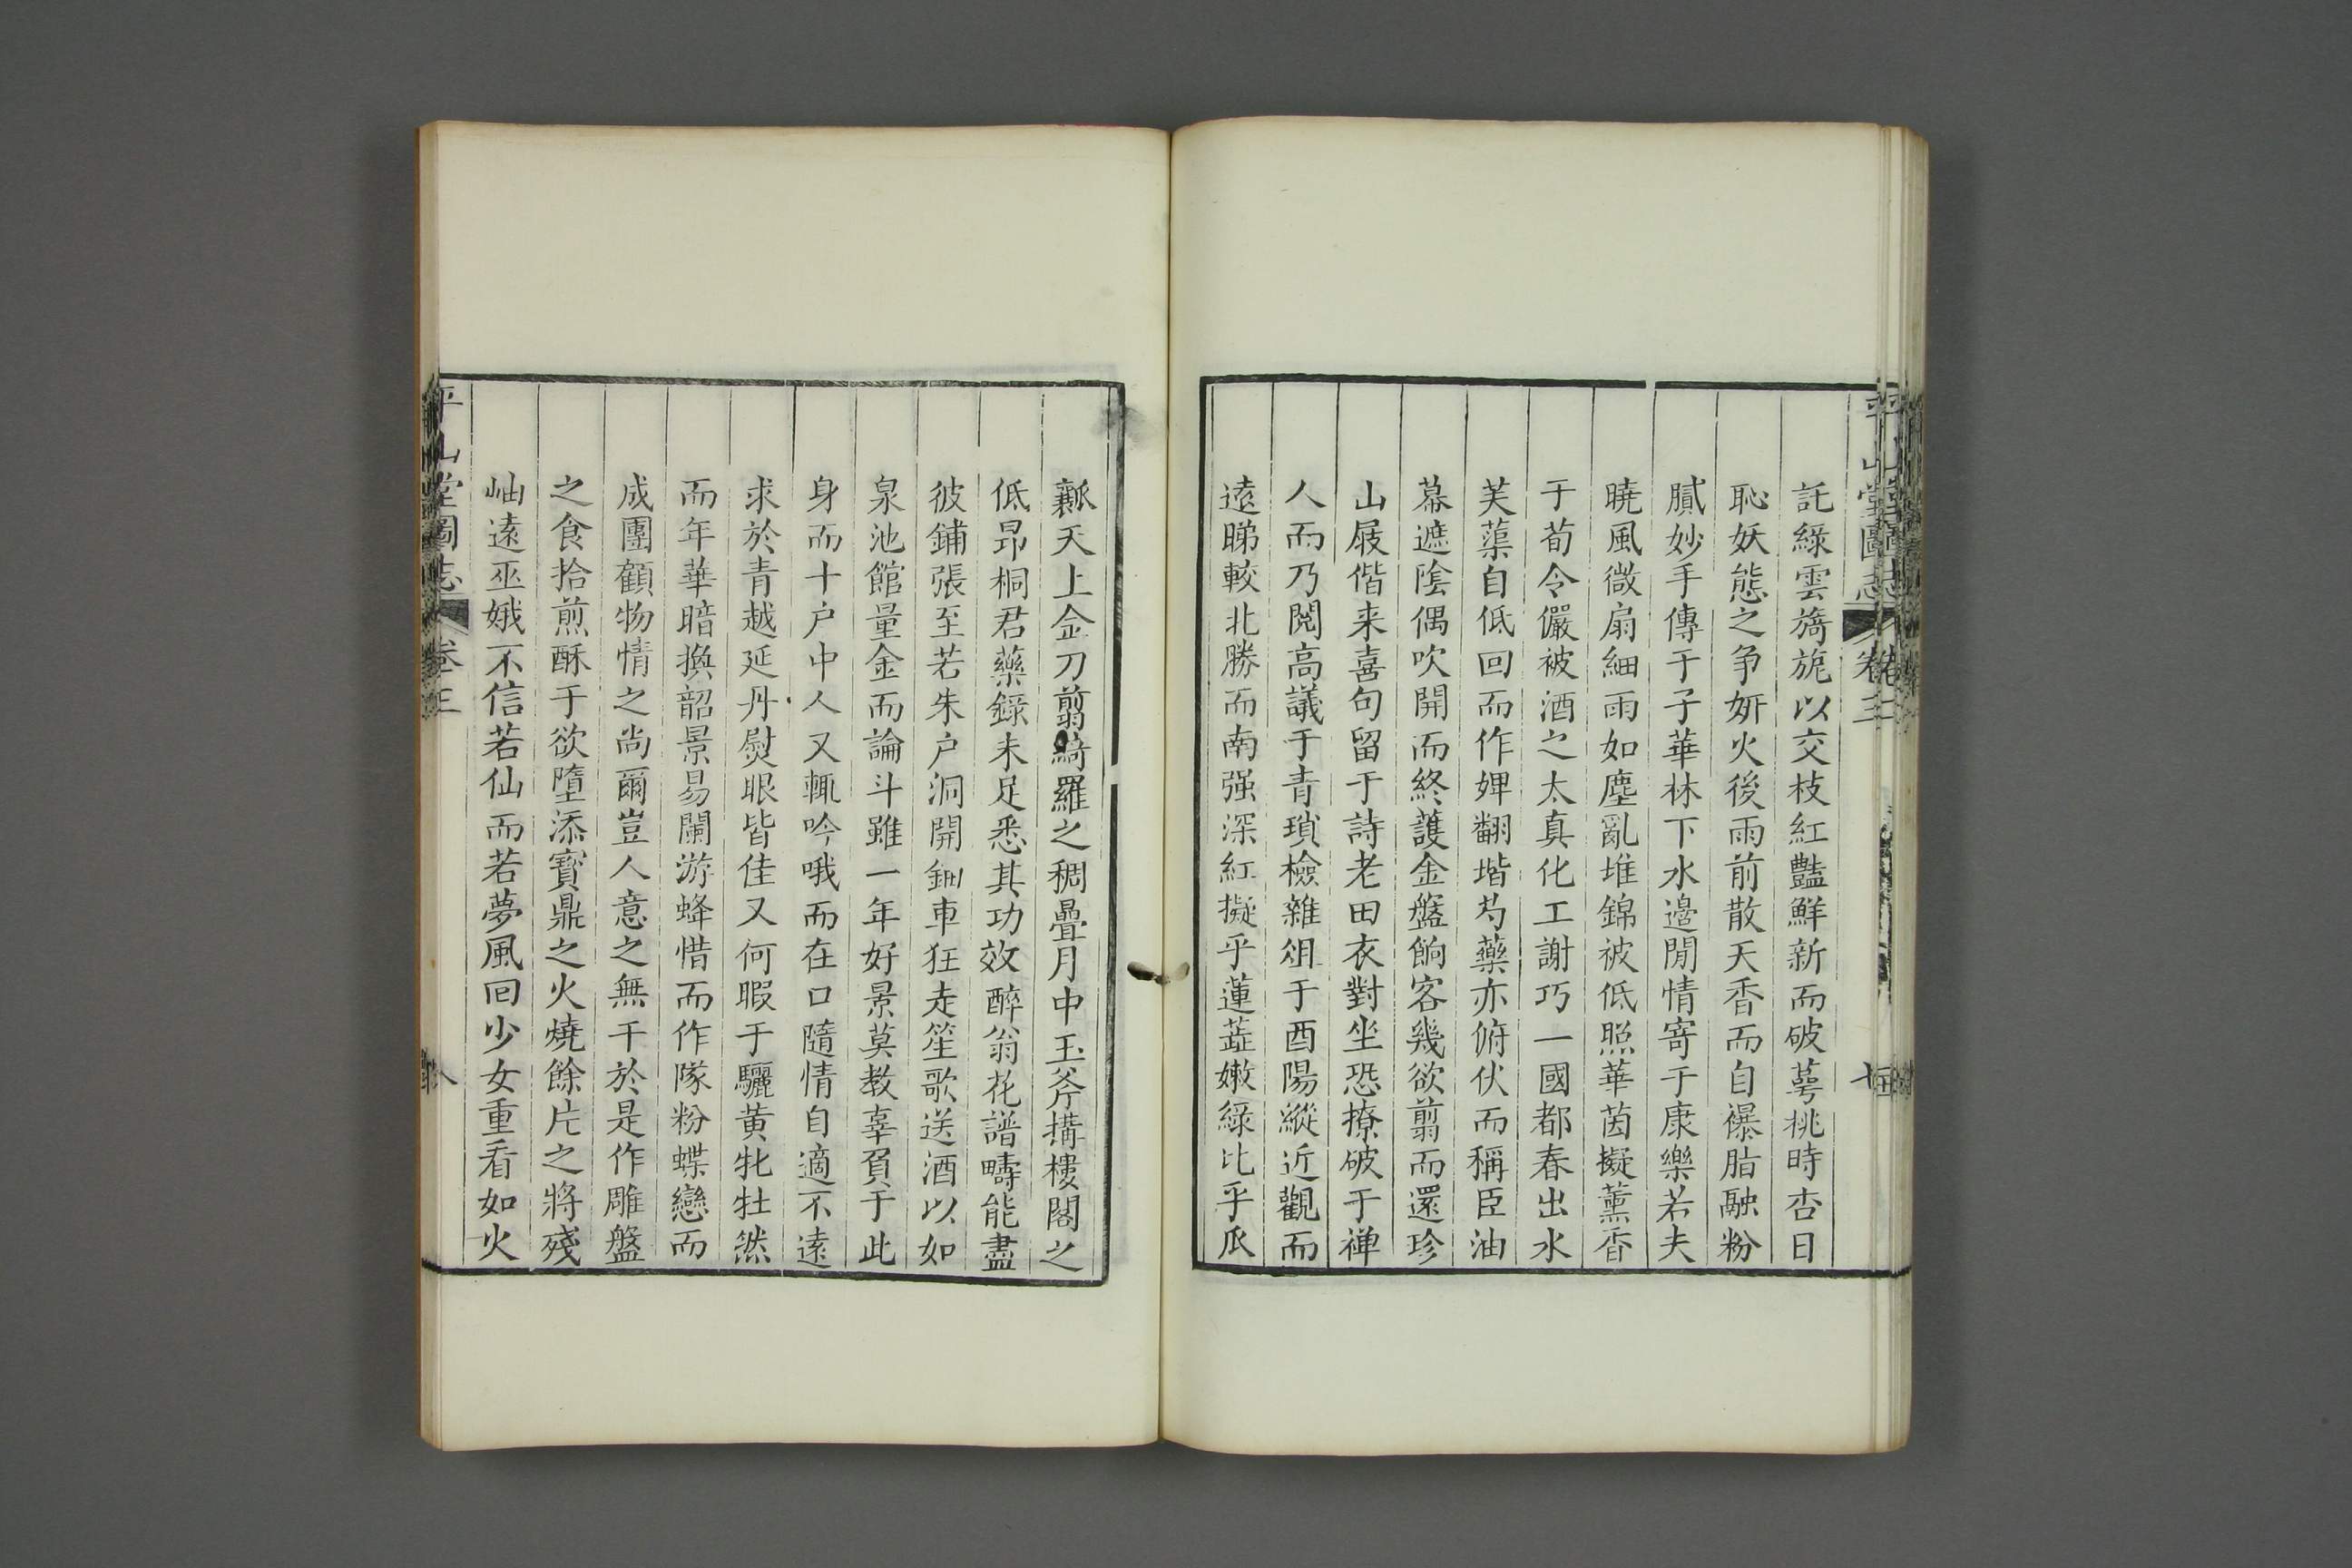 平山堂圖志 卷三
託綠雲旖旎以交枝紅豔鮮新而破萼桃時杏日
恥妖態之争妍火後雨前散天香而自襮脂融粉
膩妙手傳于子華林下水邊閒情寄于康樂若夫
曉風微扇細雨如塵亂堆錦被低照華茵擬薰香
于荀令儼被酒之太真化工謝巧一國都春出水
芙蕖自低回而作婢翻堦芍藥亦俯伏而稱臣油
幕遮陰偶吹開而終護金盤餉客幾欲翦而還珍
山屐偕来喜句留于詩老田衣對坐恐撩破于禅
人而乃閱高議于青瑣檢雜俎于酉陽縱近觀而
遠睇較北勝而南强深紅擬乎蓮蕋嫩綠比乎瓜
瓤天上金刀翦綺羅之稠疊月中玉斧搆樓閣之
低昂桐君藥錄未足悉其功效醉翁花譜疇能盡
彼鋪張至若朱户洞開鈿車狂走笙歌送酒以如
泉池館量金而論斗雖一年好景莫教辜負于此
身而十户中人又輒吟哦而在口隨情自適不遠
求於青越延丹熨眼皆佳又何暇于驪黄牝牡然
而年華暗換韶景易闌游蜂惜而作隊粉蝶戀而
成團顧物情之尚爾豈人意之無干於是作雕盤
之食拾煎酥于欲墮添寳鼎之火燒餘片之將殘
岫遠巫娥不信若仙而若夢風回少女重看如火
平山堂圖志 卷三 八